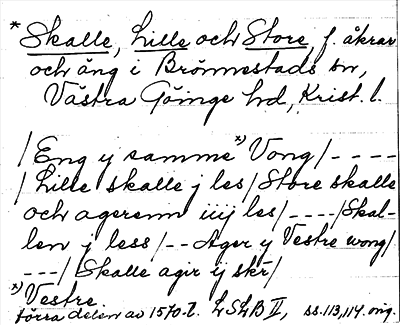 * Skalle, Lille och Store, f. åkrar
och äng i Brönnestads sn,
Västra Göinge hd, Krist. l.
/Eng y samme *) Vong/ - - - -
/Lille skalle j les/Store skalle
och agerenn iiij les/ - - - -/Skal-
len j less/ - - Ager y Vestre wong/
- - -/ Skalle agir ij skr/
*) Vestre.
förra delen av 1570-t. LSLB II, ss. 113, 114. orig.